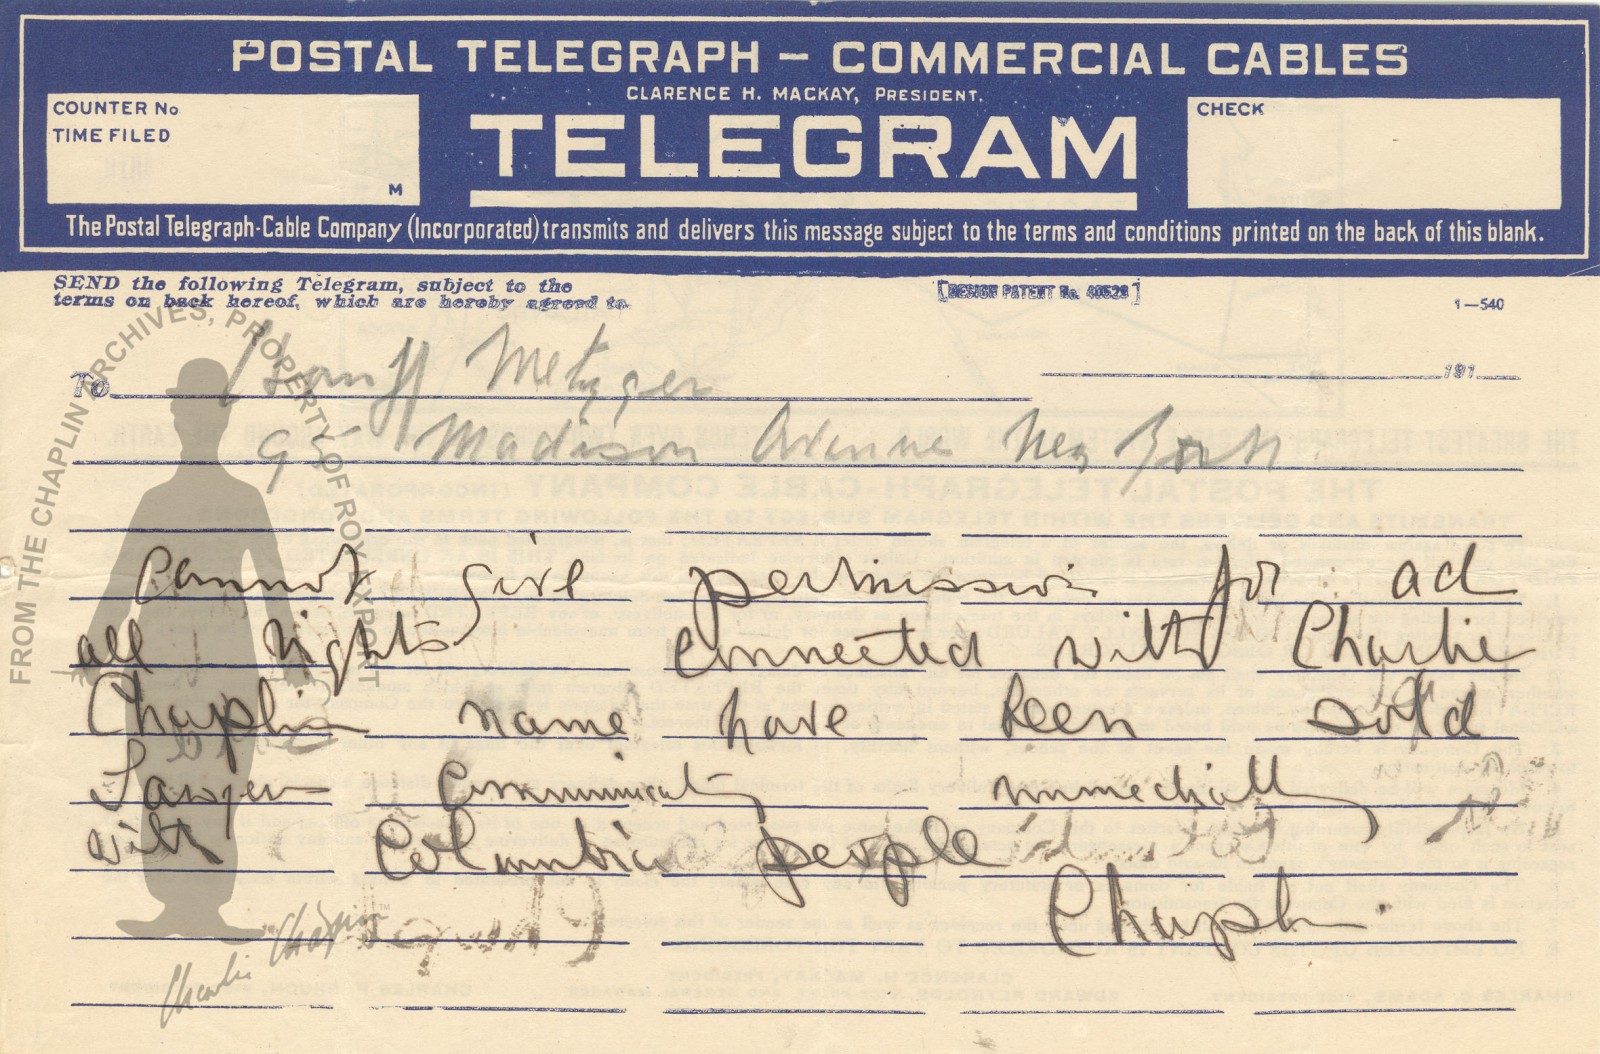 POSTAL TELEGRAPH – COMMERCIAL CABLES
CLARENCE H. MACKAY, PRESIDENT.
COUNTER No
TIME FILED
M
TELEGRAM
CHECK
The Postal Telegraph-Cable Company (Incorporated) transmits and delivers this message subject to the terms and conditions printed on the back of this blank.
SEND the following Telegram, subject to the
terms on back hereof, which are hereby agreed to.
[DESIGN PATENT No. 40529]
1—540
FROM THE CHAPLIN ARCHIVES, PROPERTY OF ROY EXPORT
To Metzger
191
9 Madison Avenue New York
Cannot give permission for ad
all rights connected with Charlie
Chaplin name have been sold
communicate immediately
with Columbia people
Chaplin
Charlie Chaplin